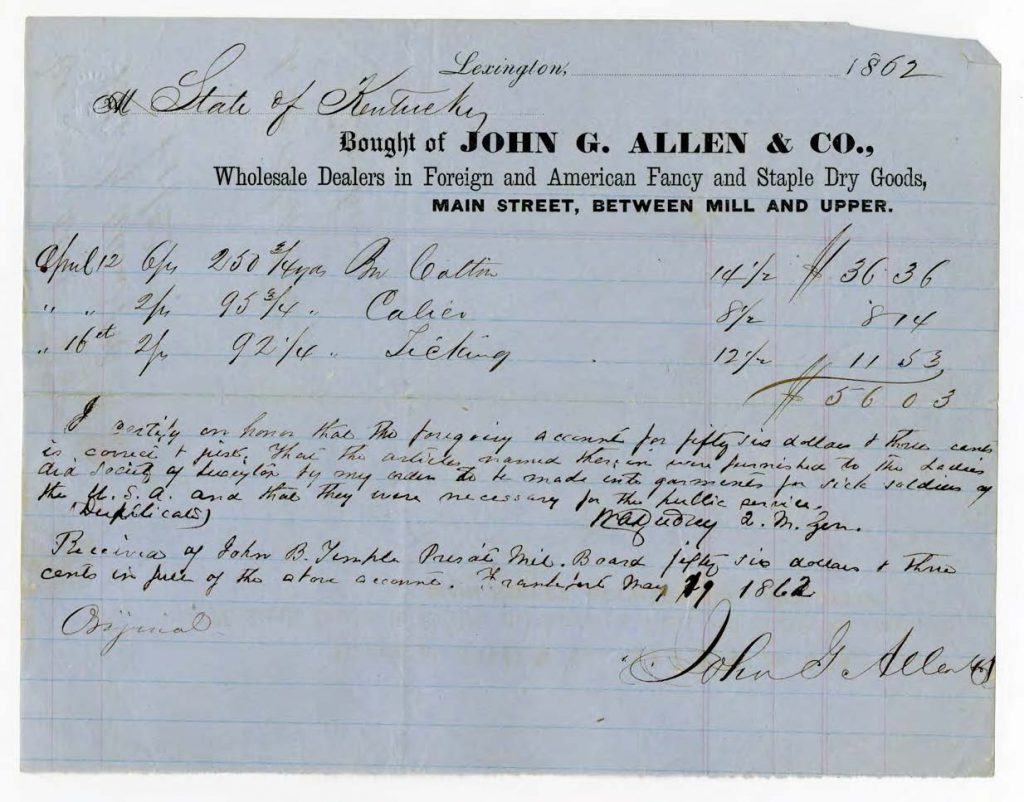 Lexington, 1862
M State of Kentucky
Bought of JOHN G. ALLEN & CO.,
Wholesale Dealers in Foreign and American Fancy and Staple Dry Goods,
MAIN STREET, BETWEEN MILL AND UPPER.
April 12 6ps 250 3/4 yds Bro Cotton 14 1/2 $ 36 36
" " 2ps 95 3/4 " Calico 8 1/2 8 14
" 16th 2ps 92 1/4 " Ticking 12 1/2 11 53
$ 56 03
I certify on honor that the foregoing account for fifty six dollars & three cents
is correct & just. That the articles named therein were furnished to the Ladies
Aid Society of Lexington by my order to be made into garments for sick soldiers of
the U.S.A. and that they were necessary for the public service.
(Duplicate) Q. M. Gen.
Received of John B. Temple Presdt Mil. Board fifty six dollars & three
cents in full of the above account. Frankfort May 19 1862
Original
John G. Allen & Co